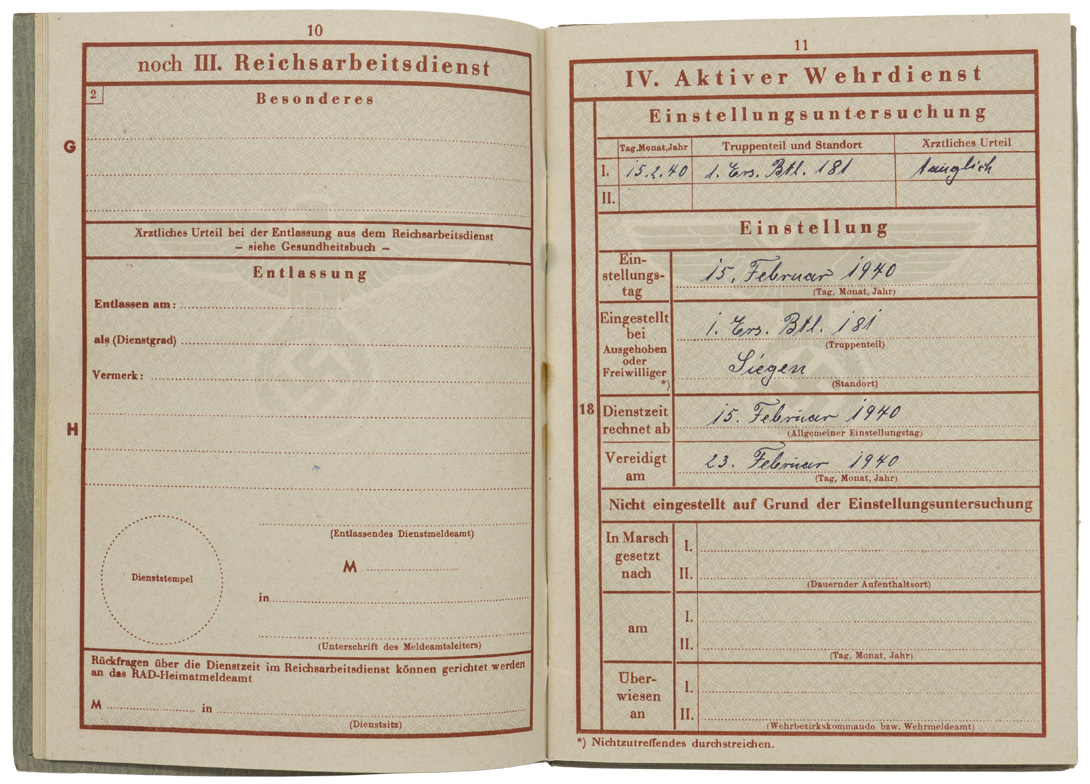 10
noch III. Reichsarbeitsdienst
2
Besonderes
G
Ärztliches Urteil bei der Entlassung aus dem Reichsarbeitsdienst
– siehe Gesundheitsbuch –
Entlassung
Entlassen am:
als (Dienstgrad)
Vermerk:
H
(Entlassendes Dienstmeldeamt)
Dienststempel
M
in
(Unterschrift des Meldeamtsleiters)
Rückfragen über die Dienstzeit im Reichsarbeitsdienst können gerichtet werden
an das RAD-Heimatmeldeamt
M in
(Dienstsitz)
11
IV. Aktiver Wehrdienst
Einstellungsuntersuchung
Tag, Monat, Jahr Truppenteil und Standort Ärztliches Urteil
I. 15.2.40 1. Ers. Btl. 181 tauglich
II.
Einstellung
Ein-
stellungs-
tag
15. Februar 1940
(Tag, Monat, Jahr)
Eingestellt
bei
Ausgehoben
oder
Freiwilliger
*)
1. Ers. Btl. 181
(Truppenteil)
Siegen
(Standort)
18
Dienstzeit
rechnet ab
15. Februar 1940
(Allgemeiner Einstellungstag)
Vereidigt
am
23. Februar 1940
(Tag, Monat, Jahr)
Nicht eingestellt auf Grund der Einstellungsuntersuchung
In Marsch
gesetzt
nach
I.
II.
(Dauernder Aufenthaltsort)
am
I.
II.
(Tag, Monat, Jahr)
Über-
wiesen
an
I.
II.
(Wehrbezirkskommando bzw. Wehrmeldeamt)
*) Nichtzutreffendes durchstreichen.